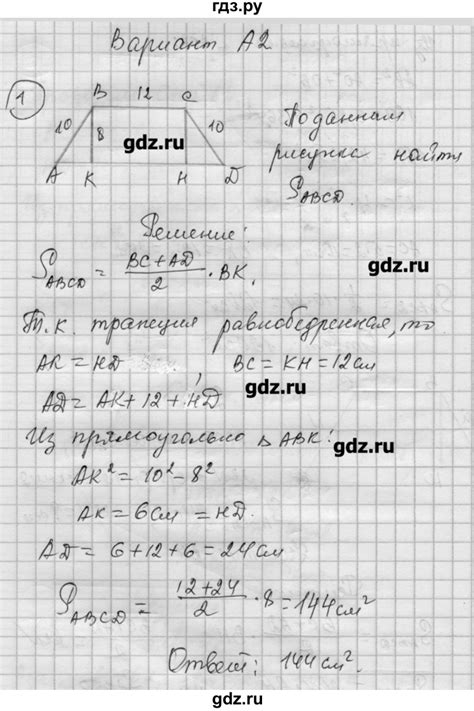 гдз.ру
Вариант А2
1
B 12 C
10 8 10
gdz.ru
A K H D
По данным
рисунка найти
S_ABCD.
gdz.ru
Решение:
S_ABCD = (BC + AD)/2 · BK.
gdz.ru
Т.к. трапеция равнобедренная, то
AK = HD, BC = KH = 12 см
gdz.ru
AD = AK + 12 + HD
Из прямоугольно Δ ABK:
gdz.ru
AK² = 10² - 8²
AK = 6 см = HD.
AD = 6 + 12 + 6 = 24 см
gdz.ru
S_ABCD = (12 + 24)/2 · 8 = 144 см²
gdz.ru
Ответ: 144 см².
gdz.ru